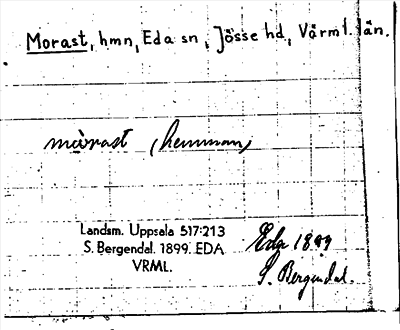 Morast, hmn, Eda sn, Jösse hd, Värml. län.
mòrast (hemman)
Landsm. Uppsala 517:213
S. Bergendal. 1899. EDA
VRML.
Eda 1899
S. Bergendal.